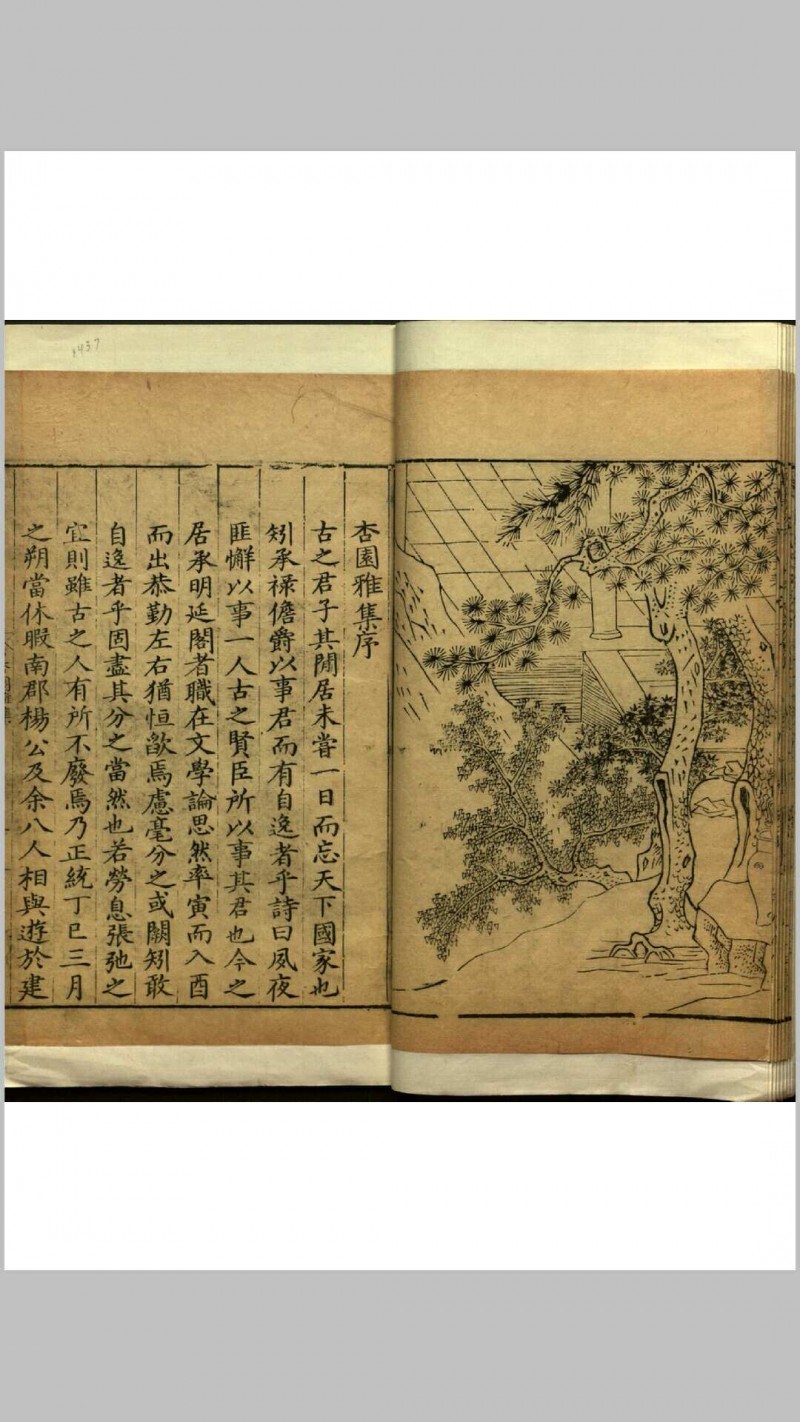 杏園雅集序
古之君子其閒居未嘗一日而忘天下國家也
矧承禄儋爵以事君而有自逸者乎詩曰夙夜
匪懈以事一人古之賢臣所以事其君也今之
居承明延閣者職在文學論思然率寅而入酉
而出恭勤左右猶恒歉焉慮毫分之或闕矧敢
自逸者乎固盡其分之當然也若勞息張弛之
宜則雖古之人有所不廢焉乃正統丁巳三月
之朔當休暇南郡楊公及余八人相與遊於建
1437